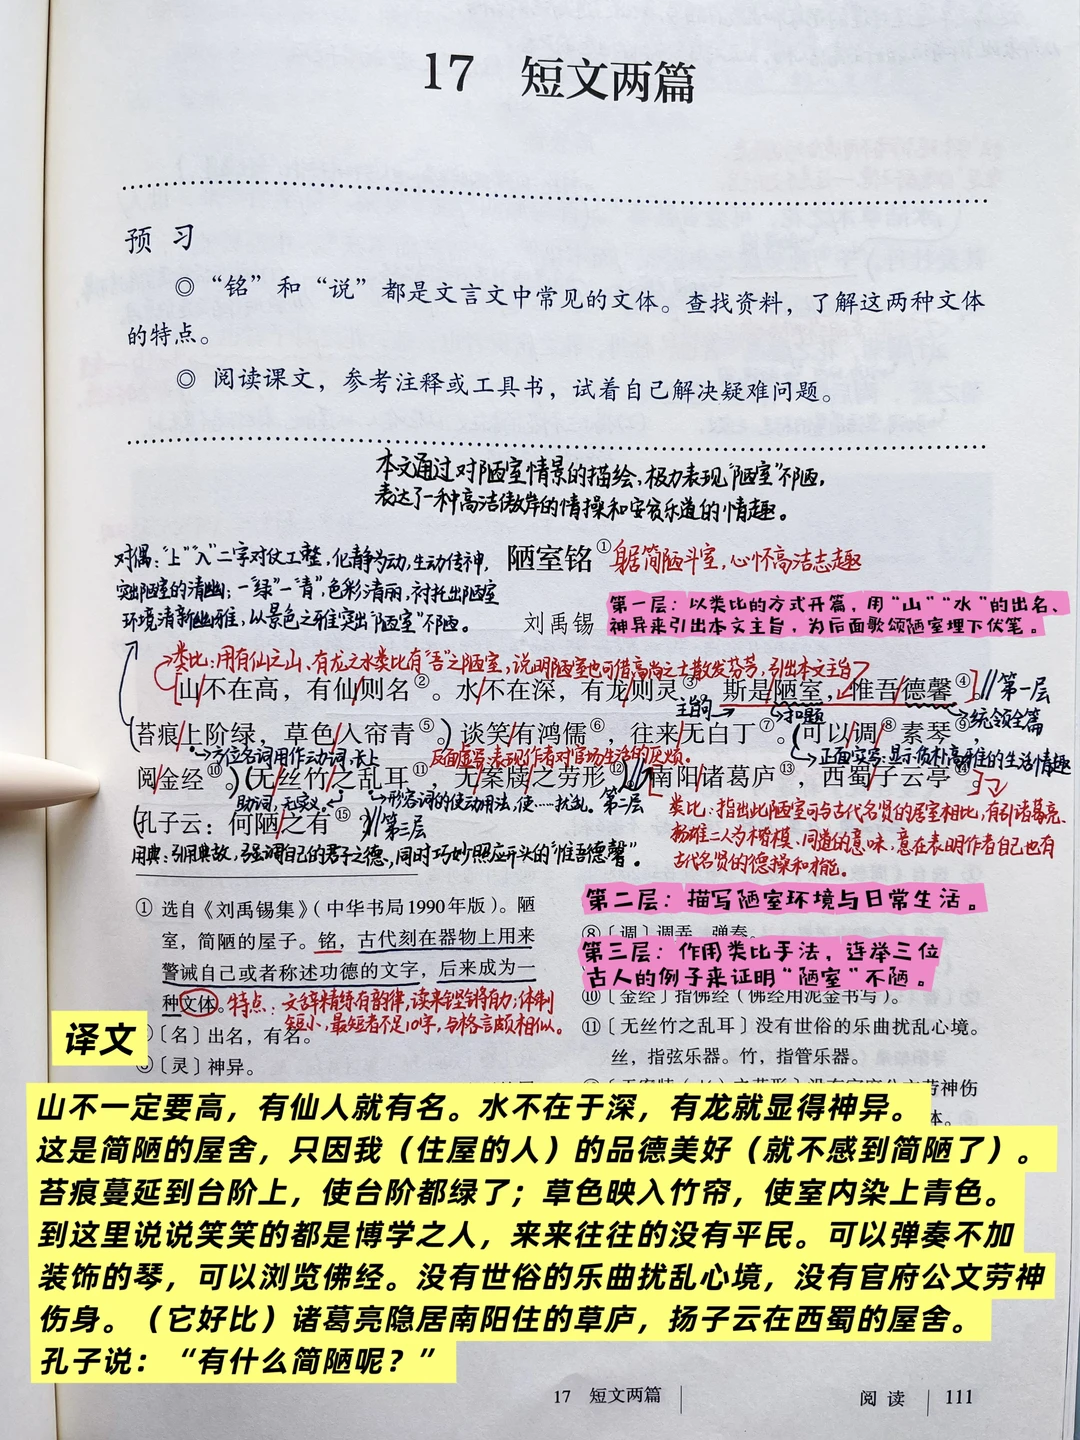 17 短文两篇
预 习
◎ “铭”和“说”都是文言文中常见的文体。查找资料，了解这两种文体
的特点。
◎ 阅读课文，参考注释或工具书，试着自己解决疑难问题。
本文通过对陋室情景的描绘，极力表现“陋室”不陋，
表达了一种高洁傲岸的情操和安贫乐道的情趣。
对偶：“上”“入”二字对仗工整，化静为动，生动传神，
突出陋室的清幽；一“绿”一“青”，色彩清丽，衬托出陋室
环境清新幽雅，从景色之雅突出“陋室”不陋。
陋室铭①
身居简陋斗室，心怀高洁志趣
刘禹锡
第一层：以类比的方式开篇，用“山”“水”的出名、
神异来引出本文主旨，为后面歌颂陋室埋下伏笔。
类比：用有仙之山、有龙之水类比有“吾”之陋室，说明陋室也可借高尚之士散发芬芳，引出本文主旨
[山/不在高，有仙/则名②。水/不在深，有龙/则灵③。斯是/陋室，惟吾/德馨④]。//第一层
主旨句 扣题 统领全篇
(苔痕/上阶绿，草色/入帘青⑤。)谈笑/有鸿儒⑥，往来/无白丁⑦。(可以/调⑧素琴⑨，
方位名词用作动词，长上
反面虚写：表现作者对官场生活的厌烦。
正面实写：显示俭朴高雅的生活情趣
阅/金经⑩。)(无/丝竹/之乱耳⑪，无/案牍/之劳形⑫。)//[南阳/诸葛庐⑬，西蜀/子云亭⑭。]
助词，无定义。
形容词的使动用法，使……扰乱。
第二层
(孔子云：何陋/之有⑮?)//第三层
类比：指出此陋室可与古代名贤的居室相比，有引诸葛亮、
扬雄二人为楷模、同道的意味，意在表明作者自己也有
古代名贤的德操和才能。
用典：引用典故，强调自己的君子之德，同时巧妙照应开头的“惟吾德馨”。
① 选自《刘禹锡集》（中华书局1990年版）。陋
室，简陋的屋子。铭，古代刻在器物上用来
警诫自己或者称述功德的文字，后来成为一
种文体。
特点：文辞精练有韵律，读来铿锵有力；体制
短小，最短者不足10字，与格言颇相似。
〔名〕出名，有名。
③〔灵〕神异。
第二层：描写陋室环境与日常生活。
⑧〔调〕调弄，弹奏。
第三层：作用类比手法，连举三位
古人的例子来证明“陋室”不陋。
⑩〔金经〕指佛经（佛经用泥金书写）。
⑪〔无丝竹之乱耳〕没有世俗的乐曲扰乱心境。
丝，指弦乐器。竹，指管乐器。
译文
山不一定要高，有仙人就有名。水不在于深，有龙就显得神异。
这是简陋的屋舍，只因我（住屋的人）的品德美好（就不感到简陋了）。
苔痕蔓延到台阶上，使台阶都绿了；草色映入竹帘，使室内染上青色。
到这里说说笑笑的都是博学之人，来来往往的没有平民。可以弹奏不加
装饰的琴，可以浏览佛经。没有世俗的乐曲扰乱心境，没有官府公文劳神
伤身。（它好比）诸葛亮隐居南阳住的草庐，扬子云在西蜀的屋舍。
孔子说：“有什么简陋呢？”
17 短文两篇
阅 读 111